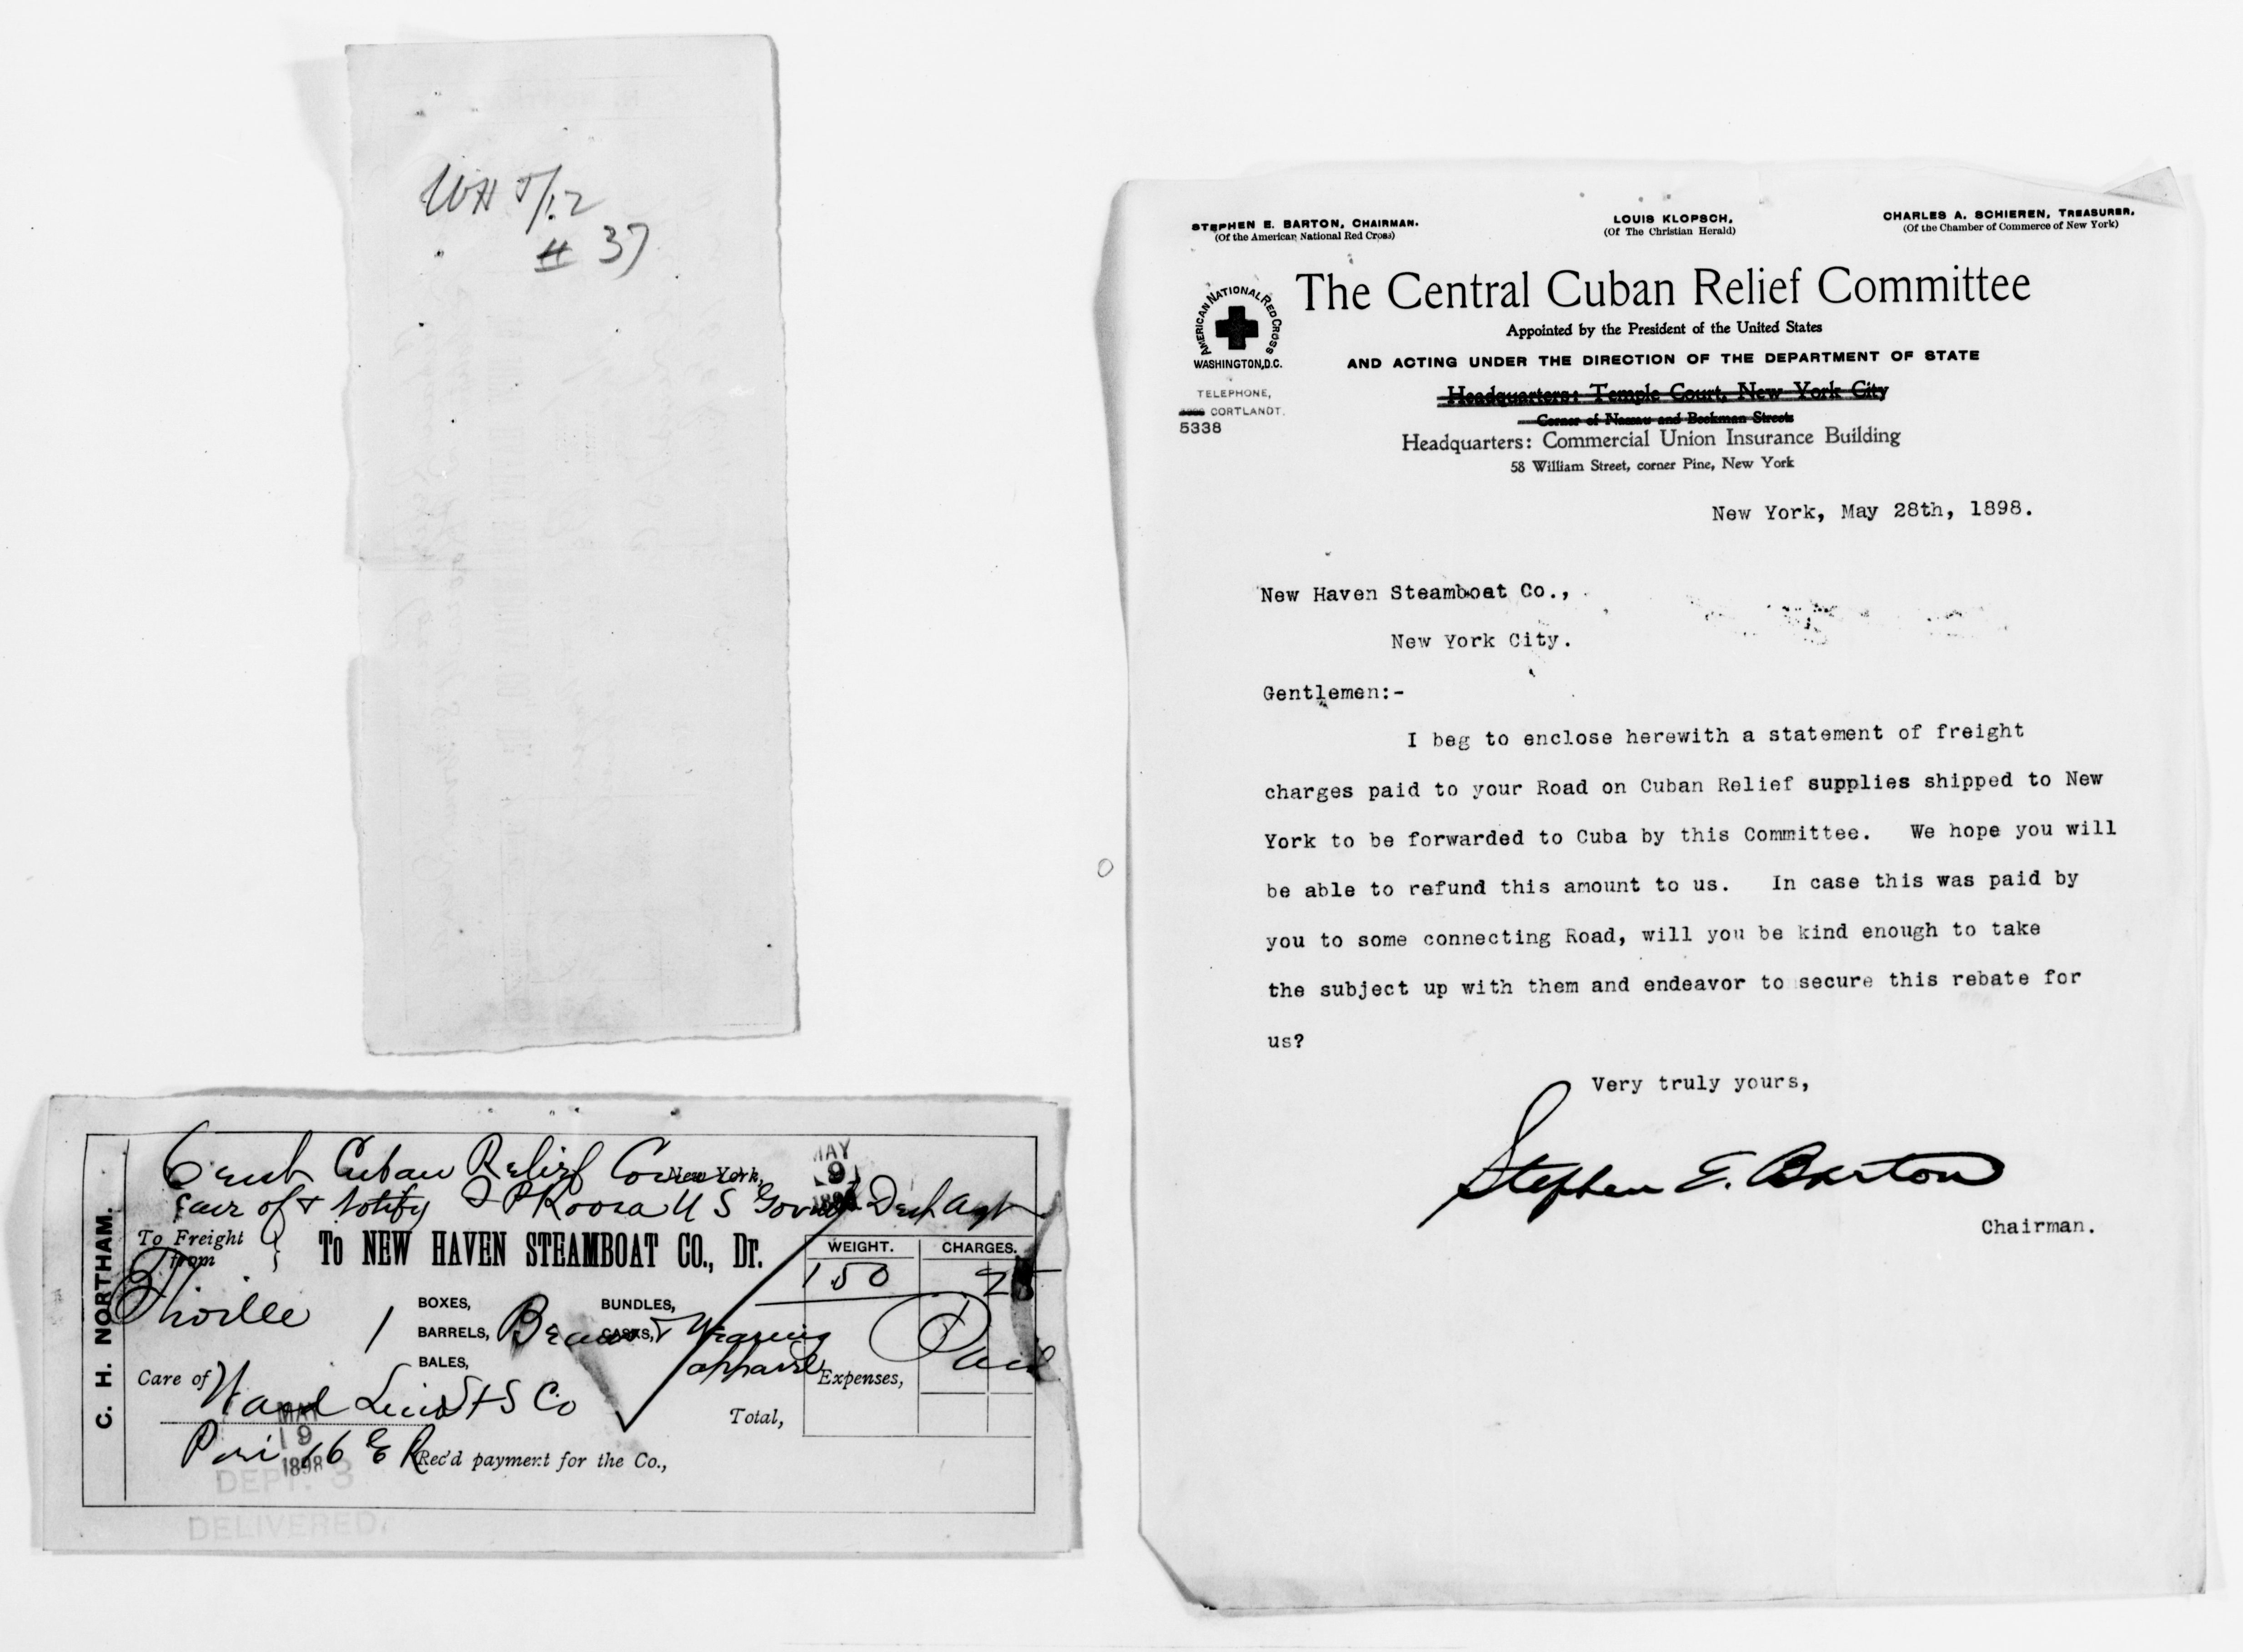 WH 5/12
# 37
Cent Cuban Relief Com New York,
MAY
9
1898
Care of & Notify J P Roosa U S Gov Desp Agt
To Freight from
To NEW HAVEN STEAMBOAT CO., Dr.
C. H. NORTHAM.
WEIGHT. CHARGES.
150 25
BOXES, BUNDLES,
1 BARRELS, CASKS, & Wearing
BALES, apparel
Paid
Care of Ward Line S S Co
Expenses,
Total,
Pier 16 E R Rec'd payment for the Co.,
MAY
19
1898
DEPT. 3
DELIVERED.
STEPHEN E. BARTON, CHAIRMAN.
(Of the American National Red Cross)
LOUIS KLOPSCH,
(Of The Christian Herald)
CHARLES A. SCHIEREN, TREASURER,
(Of the Chamber of Commerce of New York)
AMERICAN NATIONAL RED CROSS
WASHINGTON, D.C.
The Central Cuban Relief Committee
Appointed by the President of the United States
AND ACTING UNDER THE DIRECTION OF THE DEPARTMENT OF STATE
TELEPHONE,
CORTLANDT.
5338
Headquarters: Temple Court, New York City
Corner of Nassau and Beekman Streets
Headquarters: Commercial Union Insurance Building
58 William Street, corner Pine, New York
New York, May 28th, 1898.
New Haven Steamboat Co.,
New York City.
Gentlemen:-
I beg to enclose herewith a statement of freight
charges paid to your Road on Cuban Relief supplies shipped to New
York to be forwarded to Cuba by this Committee. We hope you will
be able to refund this amount to us. In case this was paid by
you to some connecting Road, will you be kind enough to take
the subject up with them and endeavor to secure this rebate for
us?
Very truly yours,
Stephen E. Barton
Chairman.